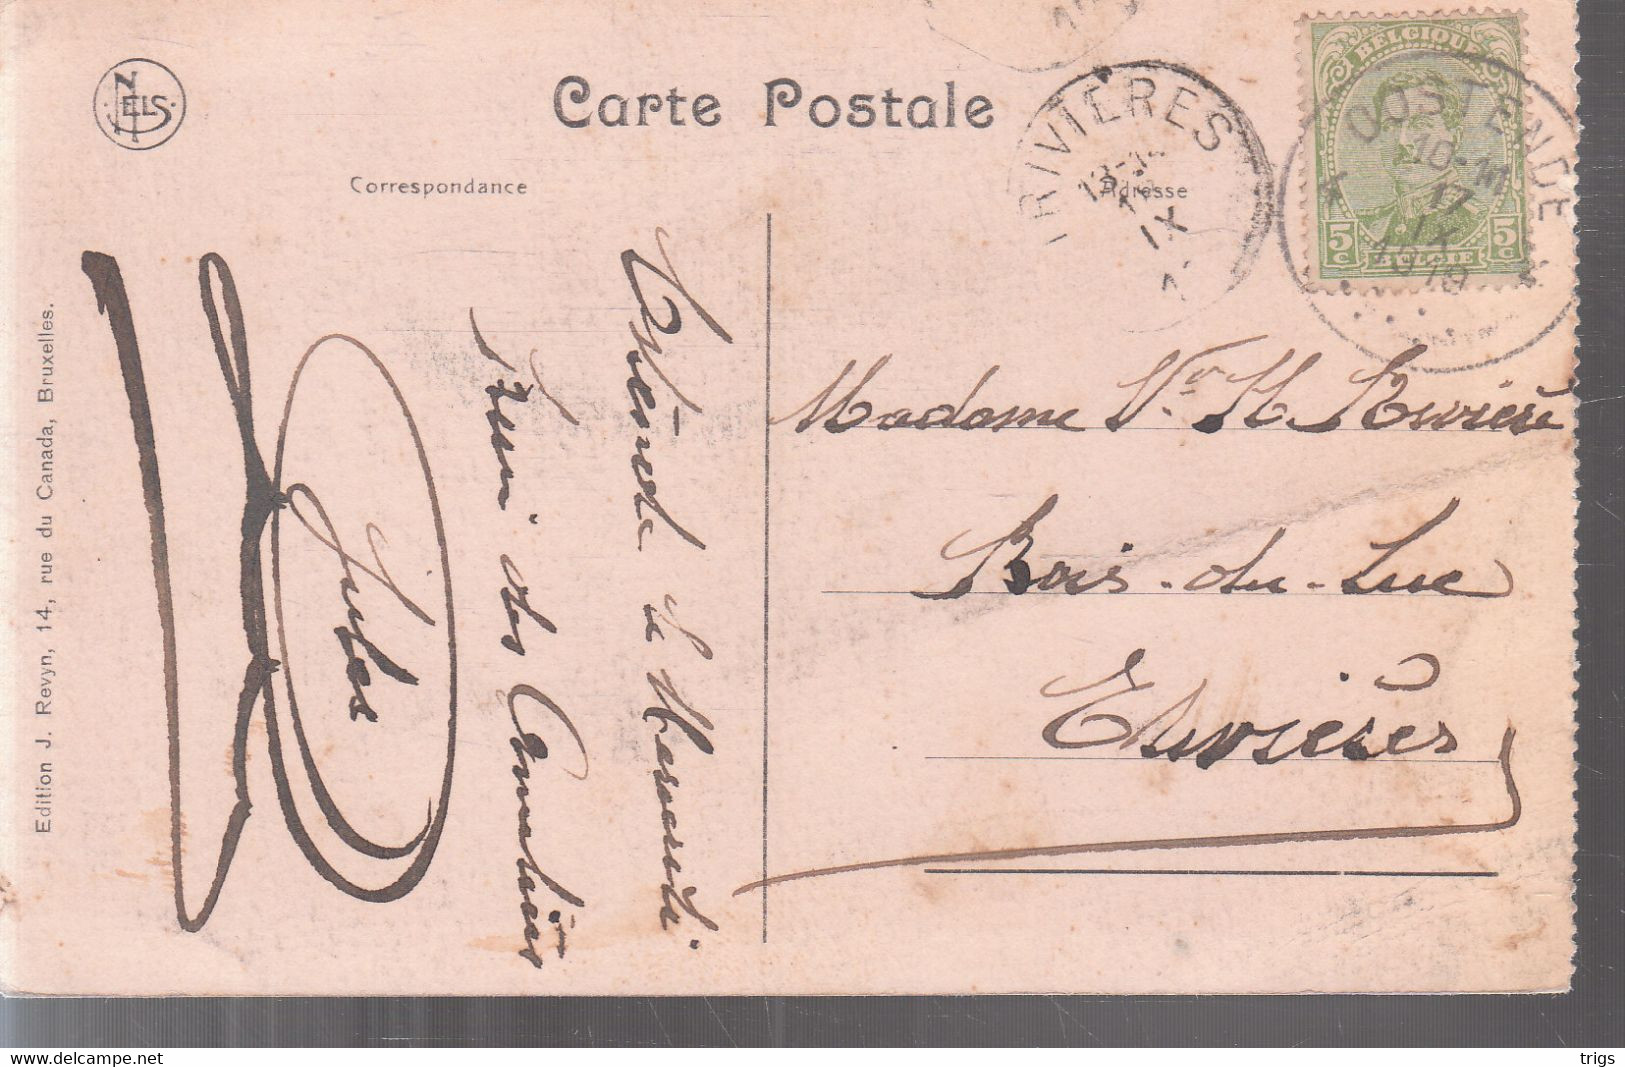 NELS
Carte Postale
Correspondance
Adresse
RIVIÈRES
IX
BELGIQUE
5c 5c
BELGIE
OOSTENDE
10-M
17
IX
1919
Edition J. Revyn, 14, rue du Canada, Bruxelles.
Ostende le Mercredi
Jules
Madame Vve H
Bois-du-Luc
Trivières
delcampe.net
trigs